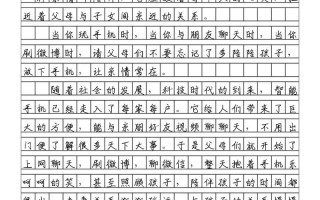 近着父母与子女间亲近的关系。
当你玩手机时，当你与朋友聊天时，当你
刷微博时，请父母们不要忘记了多陪陪孩子，
放下手机，让亲情常在。
随着社会的发展，科技时代的到来，智能
手机已经走入了每家每户。它给人们带来了巨
大的方便，能与亲朋好友视频聊聊天，不用出
门便了解很多天下大事。于是父母们就开始了
上网聊天，刷微博，聊微信，整天抱着手机乐
呵呵的笑，甚至照顾孩子，陪伴孩子的时间都